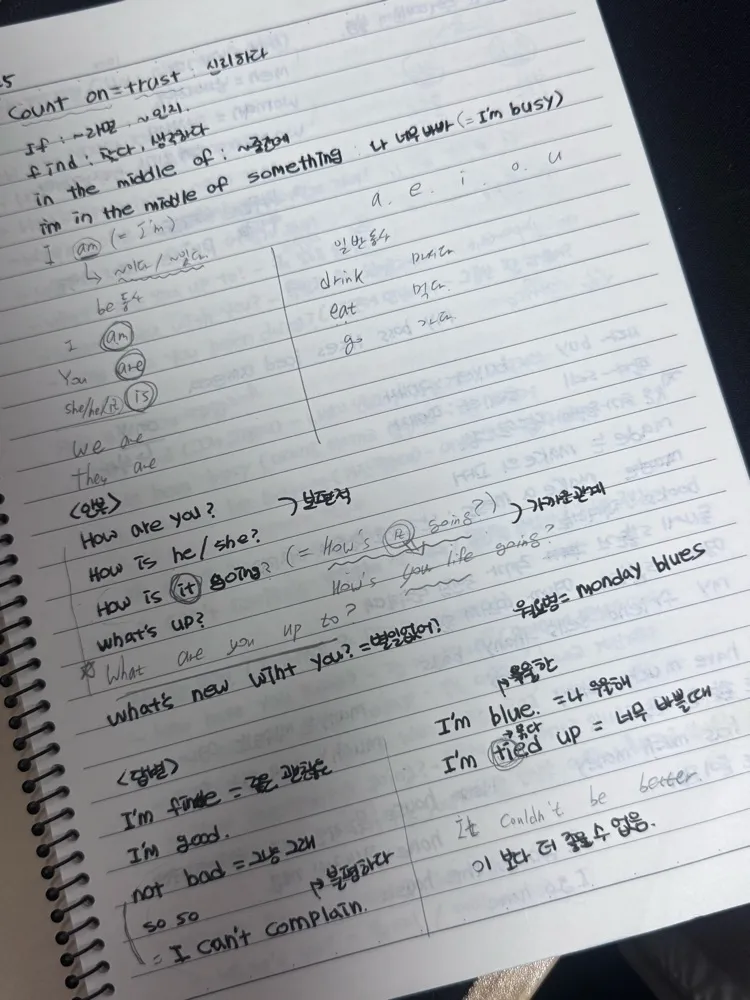 25
Count on = trust : 신뢰하다
If : ~라면, ~인지.
find : 찾다, 생각하다
in the middle of : ~중간에
im in the middle of something : 나 너무 바빠 (= I'm busy)
a. e. i. o. u
I am (= I'm)
↳ ~이다 / ~있다
be동사
I am
You are
she/he/it is
we are
they are
일반동사
drink 마시다
eat 먹다
go 가다
<안부>
How are you? > 보편적
How is he/she?
How is it going? (= How's it going?) > 가까운 관계
How's you life going?
what's up?
* What are you up to?
what's new wiht you? = 별일없어?
월요병 = monday blues
<답변>
I'm fine = 괜찮은
I'm good.
not bad = 그냥 그래
so so
불평하다
= I can't complain.
우울한
I'm blue. = 나 우울해
→묶다
I'm tied up = 너무 바쁠때
It couldn't be better.
이 보다 더 좋을 수 없음.